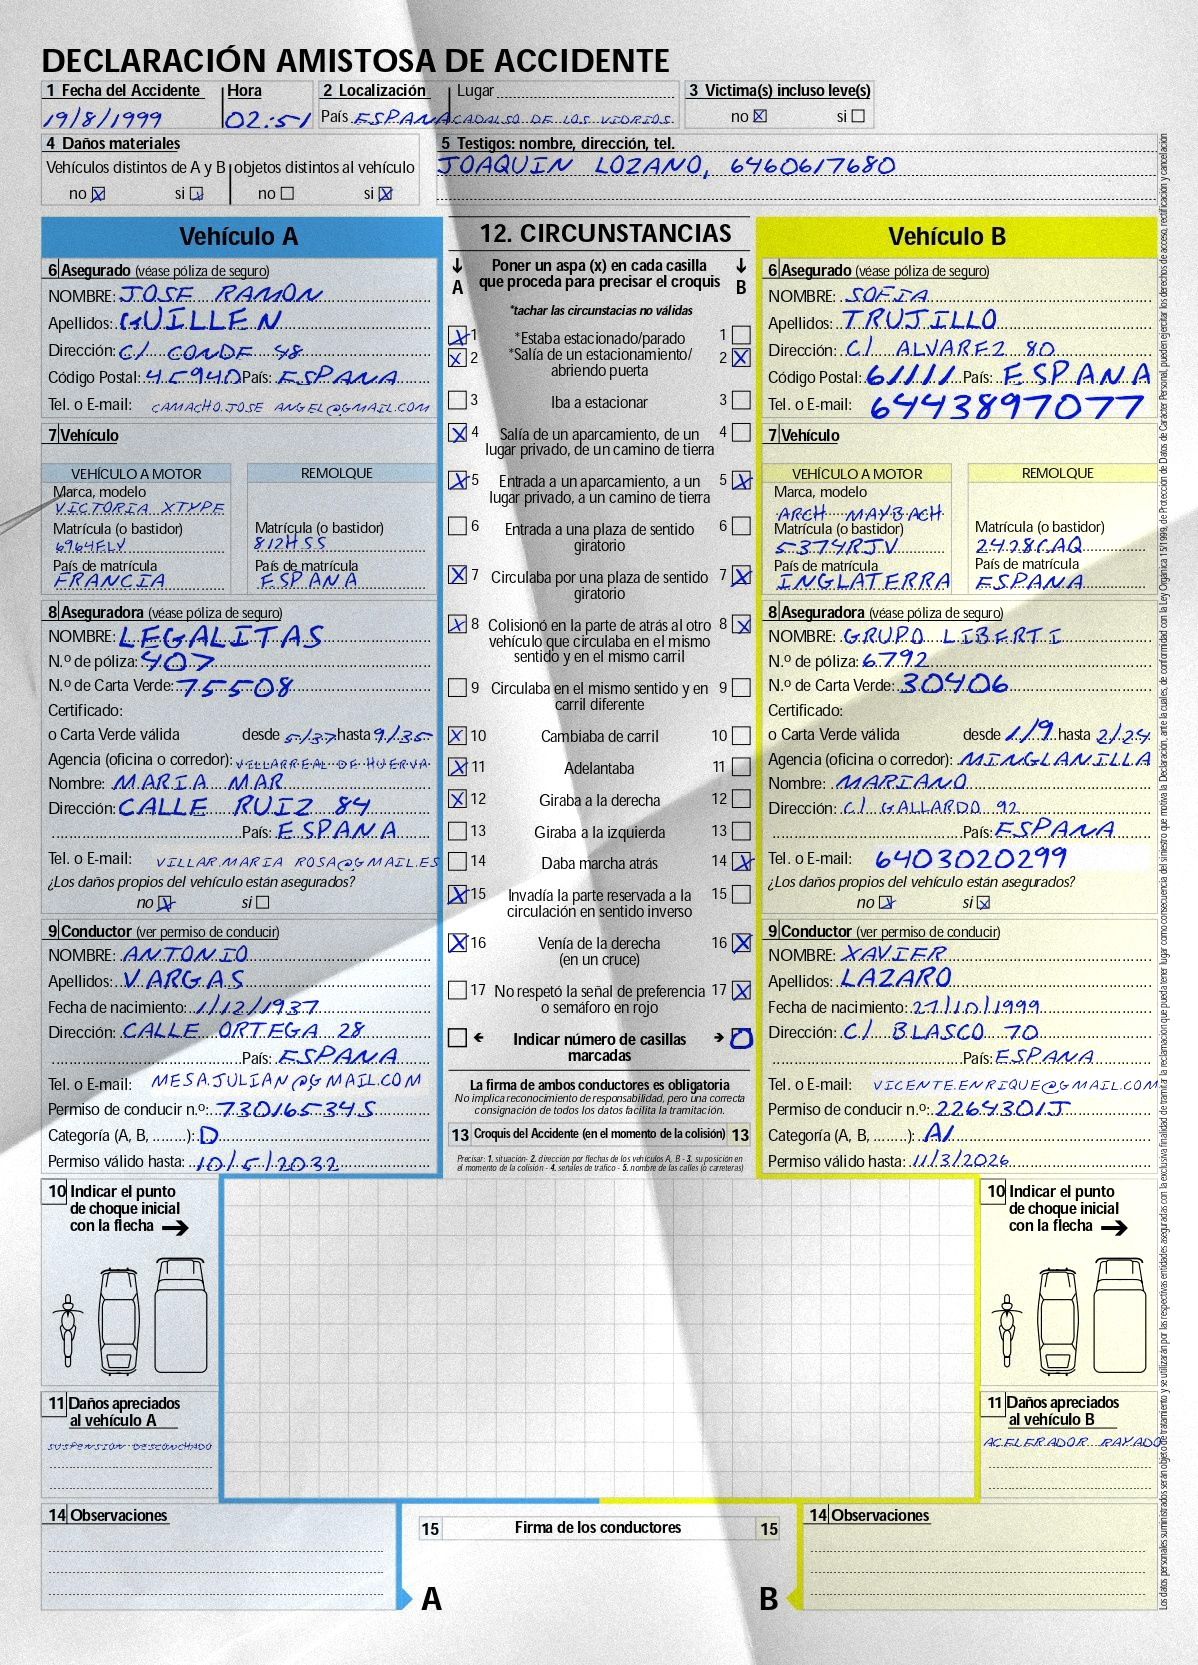 DECLARACIÓN AMISTOSA DE ACCIDENTE
1 Fecha del Accidente Hora 2 Localización Lugar 3 Victima(s) incluso leve(s)
19/8/1999 02:51 País ESPANA CADALSO DE LOS VIDRIOS no X si
4 Daños materiales
Vehículos distintos de A y B objetos distintos al vehículo
no X si X no si X
5 Testigos: nombre, dirección, tel.
JOAQUIN LOZANO, 6460617680
Vehículo A
6 Asegurado (véase póliza de seguro)
NOMBRE: JOSE RAMON
Apellidos: GUILLEN
Dirección: C/ CONDE 48
Código Postal: 45940 País: ESPANA
Tel. o E-mail: CAMACHO.JOSE ANGEL@GMAIL.COM
7 Vehículo
VEHÍCULO A MOTOR REMOLQUE
Marca, modelo
VICTORIA XTYPE
Matrícula (o bastidor) Matrícula (o bastidor)
6964FLV 812HSS
País de matrícula País de matrícula
FRANCIA ESPANA
8 Aseguradora (véase póliza de seguro)
NOMBRE: LEGALITAS
N.º de póliza: 407
N.º de Carta Verde: 75508
Certificado:
o Carta Verde válida desde 5/37 hasta 9/35
Agencia (oficina o corredor): VILLARREAL DE HUERVA
Nombre: MARIA MAR
Dirección: CALLE RUIZ 84
País: ESPANA
Tel. o E-mail: VILLAR.MARIA ROSA@GMAIL.ES
¿Los daños propios del vehículo están asegurados?
no X si
9 Conductor (ver permiso de conducir)
NOMBRE: ANTONIO
Apellidos: VARGAS
Fecha de nacimiento: 1/12/1937
Dirección: CALLE ORTEGA 28
País: ESPANA
Tel. o E-mail: MESA.JULIAN@GMAIL.COM
Permiso de conducir n.º: 73016534S
Categoría (A, B, ........): D
Permiso válido hasta: 10/5/2032
12. CIRCUNSTANCIAS
A Poner un aspa (x) en cada casilla que proceda para precisar el croquis B
*tachar las circunstacias no válidas
X 1 *Estaba estacionado/parado 1
X 2 *Salía de un estacionamiento/ 2 X
abriendo puerta
3 Iba a estacionar 3
X 4 Salía de un aparcamiento, de un 4
lugar privado, de un camino de tierra
X 5 Entrada a un aparcamiento, a un 5 X
lugar privado, a un camino de tierra
6 Entrada a una plaza de sentido 6
giratorio
X 7 Circulaba por una plaza de sentido 7 X
giratorio
X 8 Colisionó en la parte de atrás al otro 8 X
vehículo que circulaba en el mismo
sentido y en el mismo carril
9 Circulaba en el mismo sentido y en 9
carril diferente
X 10 Cambiaba de carril 10
X 11 Adelantaba 11
X 12 Giraba a la derecha 12
13 Giraba a la izquierda 13
14 Daba marcha atrás 14 X
X 15 Invadía la parte reservada a la 15
circulación en sentido inverso
X 16 Venía de la derecha 16 X
(en un cruce)
17 No respetó la señal de preferencia 17 X
o semáforo en rojo
Indicar número de casillas 0
marcadas
La firma de ambos conductores es obligatoria
No implica reconocimiento de responsabilidad, pero una correcta
consignación de todos los datos facilita la tramitación.
13 Croquis del Accidente (en el momento de la colisión) 13
Precisar: 1. situación- 2. dirección por flechas de los vehículos A, B - 3. su posición en
el momento de la colisión - 4. señales de tráfico - 5. nombre de las calles (o carreteras)
Vehículo B
6 Asegurado (véase póliza de seguro)
NOMBRE: SOFIA
Apellidos: TRUJILLO
Dirección: C/ ALVAREZ 80
Código Postal: 61111 País: ESPANA
Tel. o E-mail: 6443897077
7 Vehículo
VEHÍCULO A MOTOR REMOLQUE
Marca, modelo
ARCH MAYBACH
Matrícula (o bastidor) Matrícula (o bastidor)
5374RJV 2428CAQ
País de matrícula País de matrícula
INGLATERRA ESPANA
8 Aseguradora (véase póliza de seguro)
NOMBRE: GRUPO LIBERTI
N.º de póliza: 6792
N.º de Carta Verde: 30406
Certificado:
o Carta Verde válida desde 1/9 hasta 2/24
Agencia (oficina o corredor): MINGLANILLA
Nombre: MARIANO
Dirección: C/ GALLARDO 92
País: ESPANA
Tel. o E-mail: 6403020299
¿Los daños propios del vehículo están asegurados?
no X si X
9 Conductor (ver permiso de conducir)
NOMBRE: XAVIER
Apellidos: LAZARO
Fecha de nacimiento: 27/10/1999
Dirección: C/ BLASCO 70
País: ESPANA
Tel. o E-mail: VICENTE.ENRIQUE@GMAIL.COM
Permiso de conducir n.º: 2264301J
Categoría (A, B, ........): A1
Permiso válido hasta: 11/3/2026
10 Indicar el punto
de choque inicial
con la flecha
10 Indicar el punto
de choque inicial
con la flecha
11 Daños apreciados
al vehículo A
SUSPENSION DESCONCHADO
11 Daños apreciados
al vehículo B
ACELERADOR RAYADO
14 Observaciones
15 Firma de los conductores 15
A B
14 Observaciones